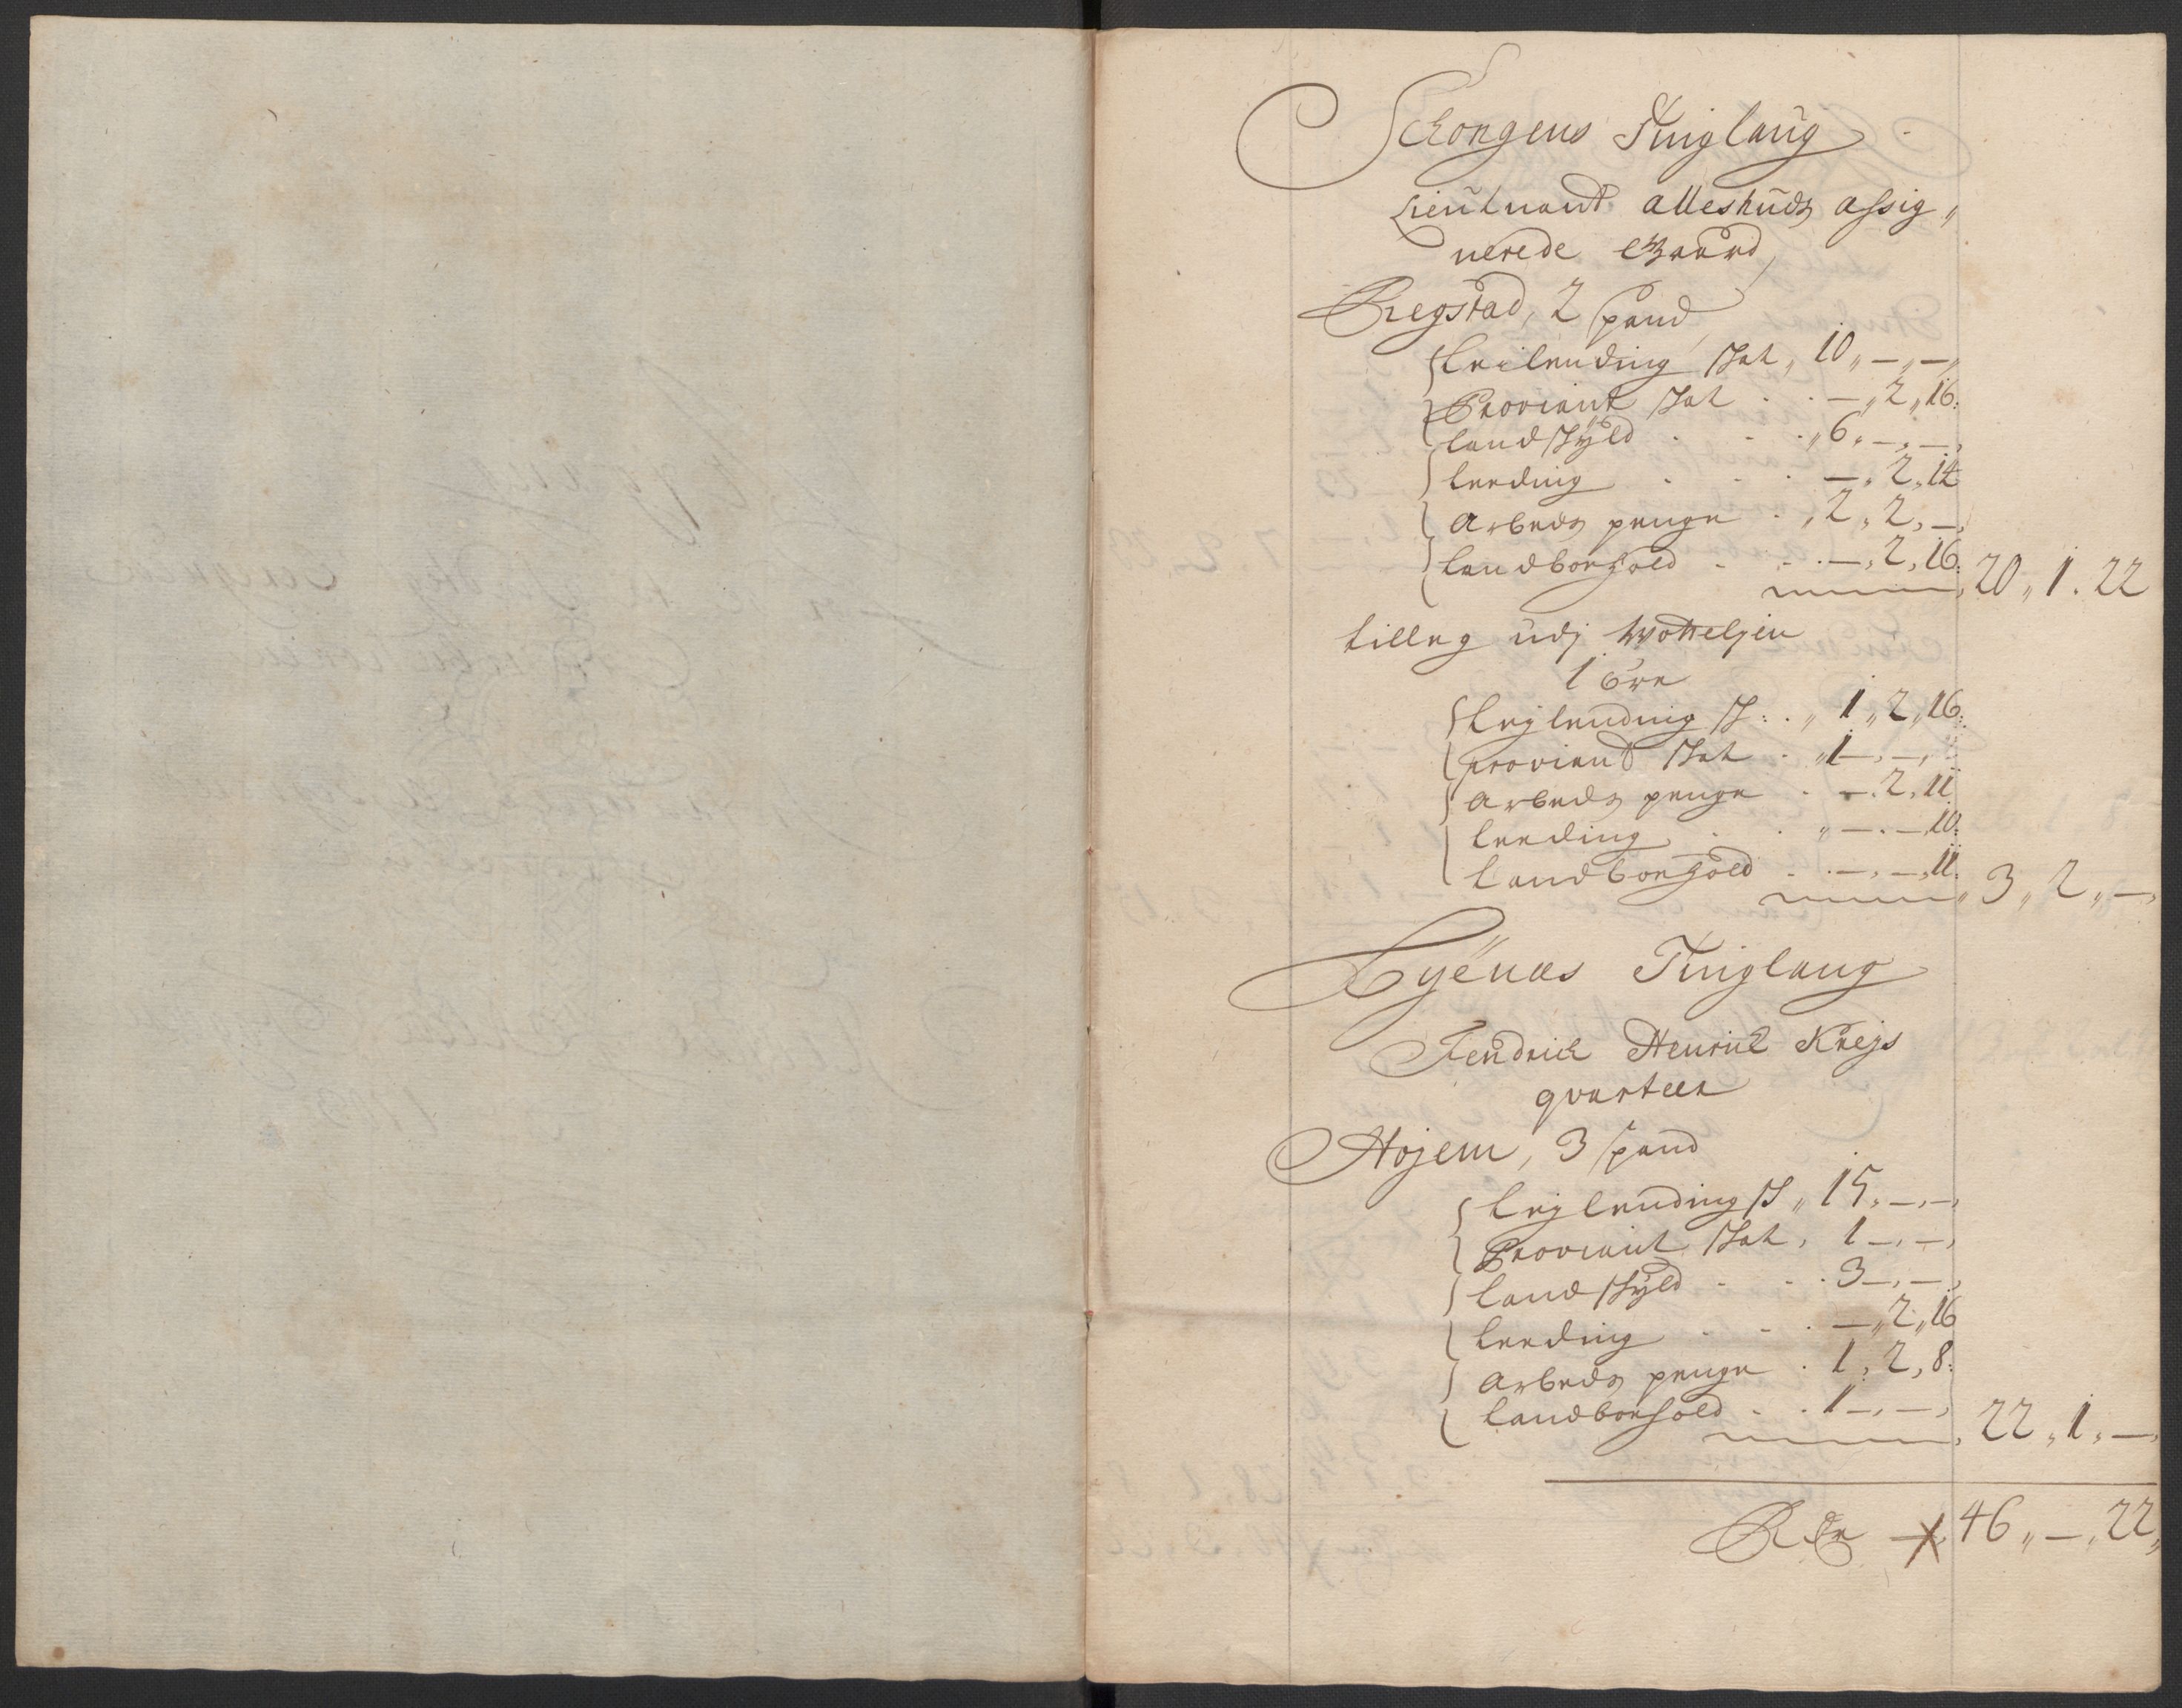 Schongens Tinglaug
Lieutnant Alleshuds assig„
nerede Gaard,
Regstad, 2 spand
Leilending Skat, 10„ — „ — „
Proviant Skat . . — „ 2 „ 16:
landskyld . . . „ 6 „ — „ —
leeding . . . — „ 2 „ 14
Arbeds penge . , 2 „ 2 , — ,
landborhold . . . — , 2 , 16: 20 „ 1 . 22
tilleg udj Wottelgien
1 öre
Lejlending sk: . „ 1 „ 2 „ 16:
proviand Skat . „ 1 — , — ,
Arbeds penge . — . 2 , 11
leeding . . „ — . — , 10:
Landborhold . . — , — , 11: „ 3 „ 2 „ — ,
Byenæs Tinglaug
Fendrick Henrick Krejs
qvarteer
Hojem, 3 spand
Lejlending sk „ 15 , — , — ,
Proviant Skat , 1 — , — ,
Land skyld . . . 3 — , — ,
leeding . . . — „ 2 „ 16
Arbeds penge . 1 , 2 , 8:
Landborhold . . 1 — , — , 22 „ 1 , — ,
Rdr 46 „ — , 22 „